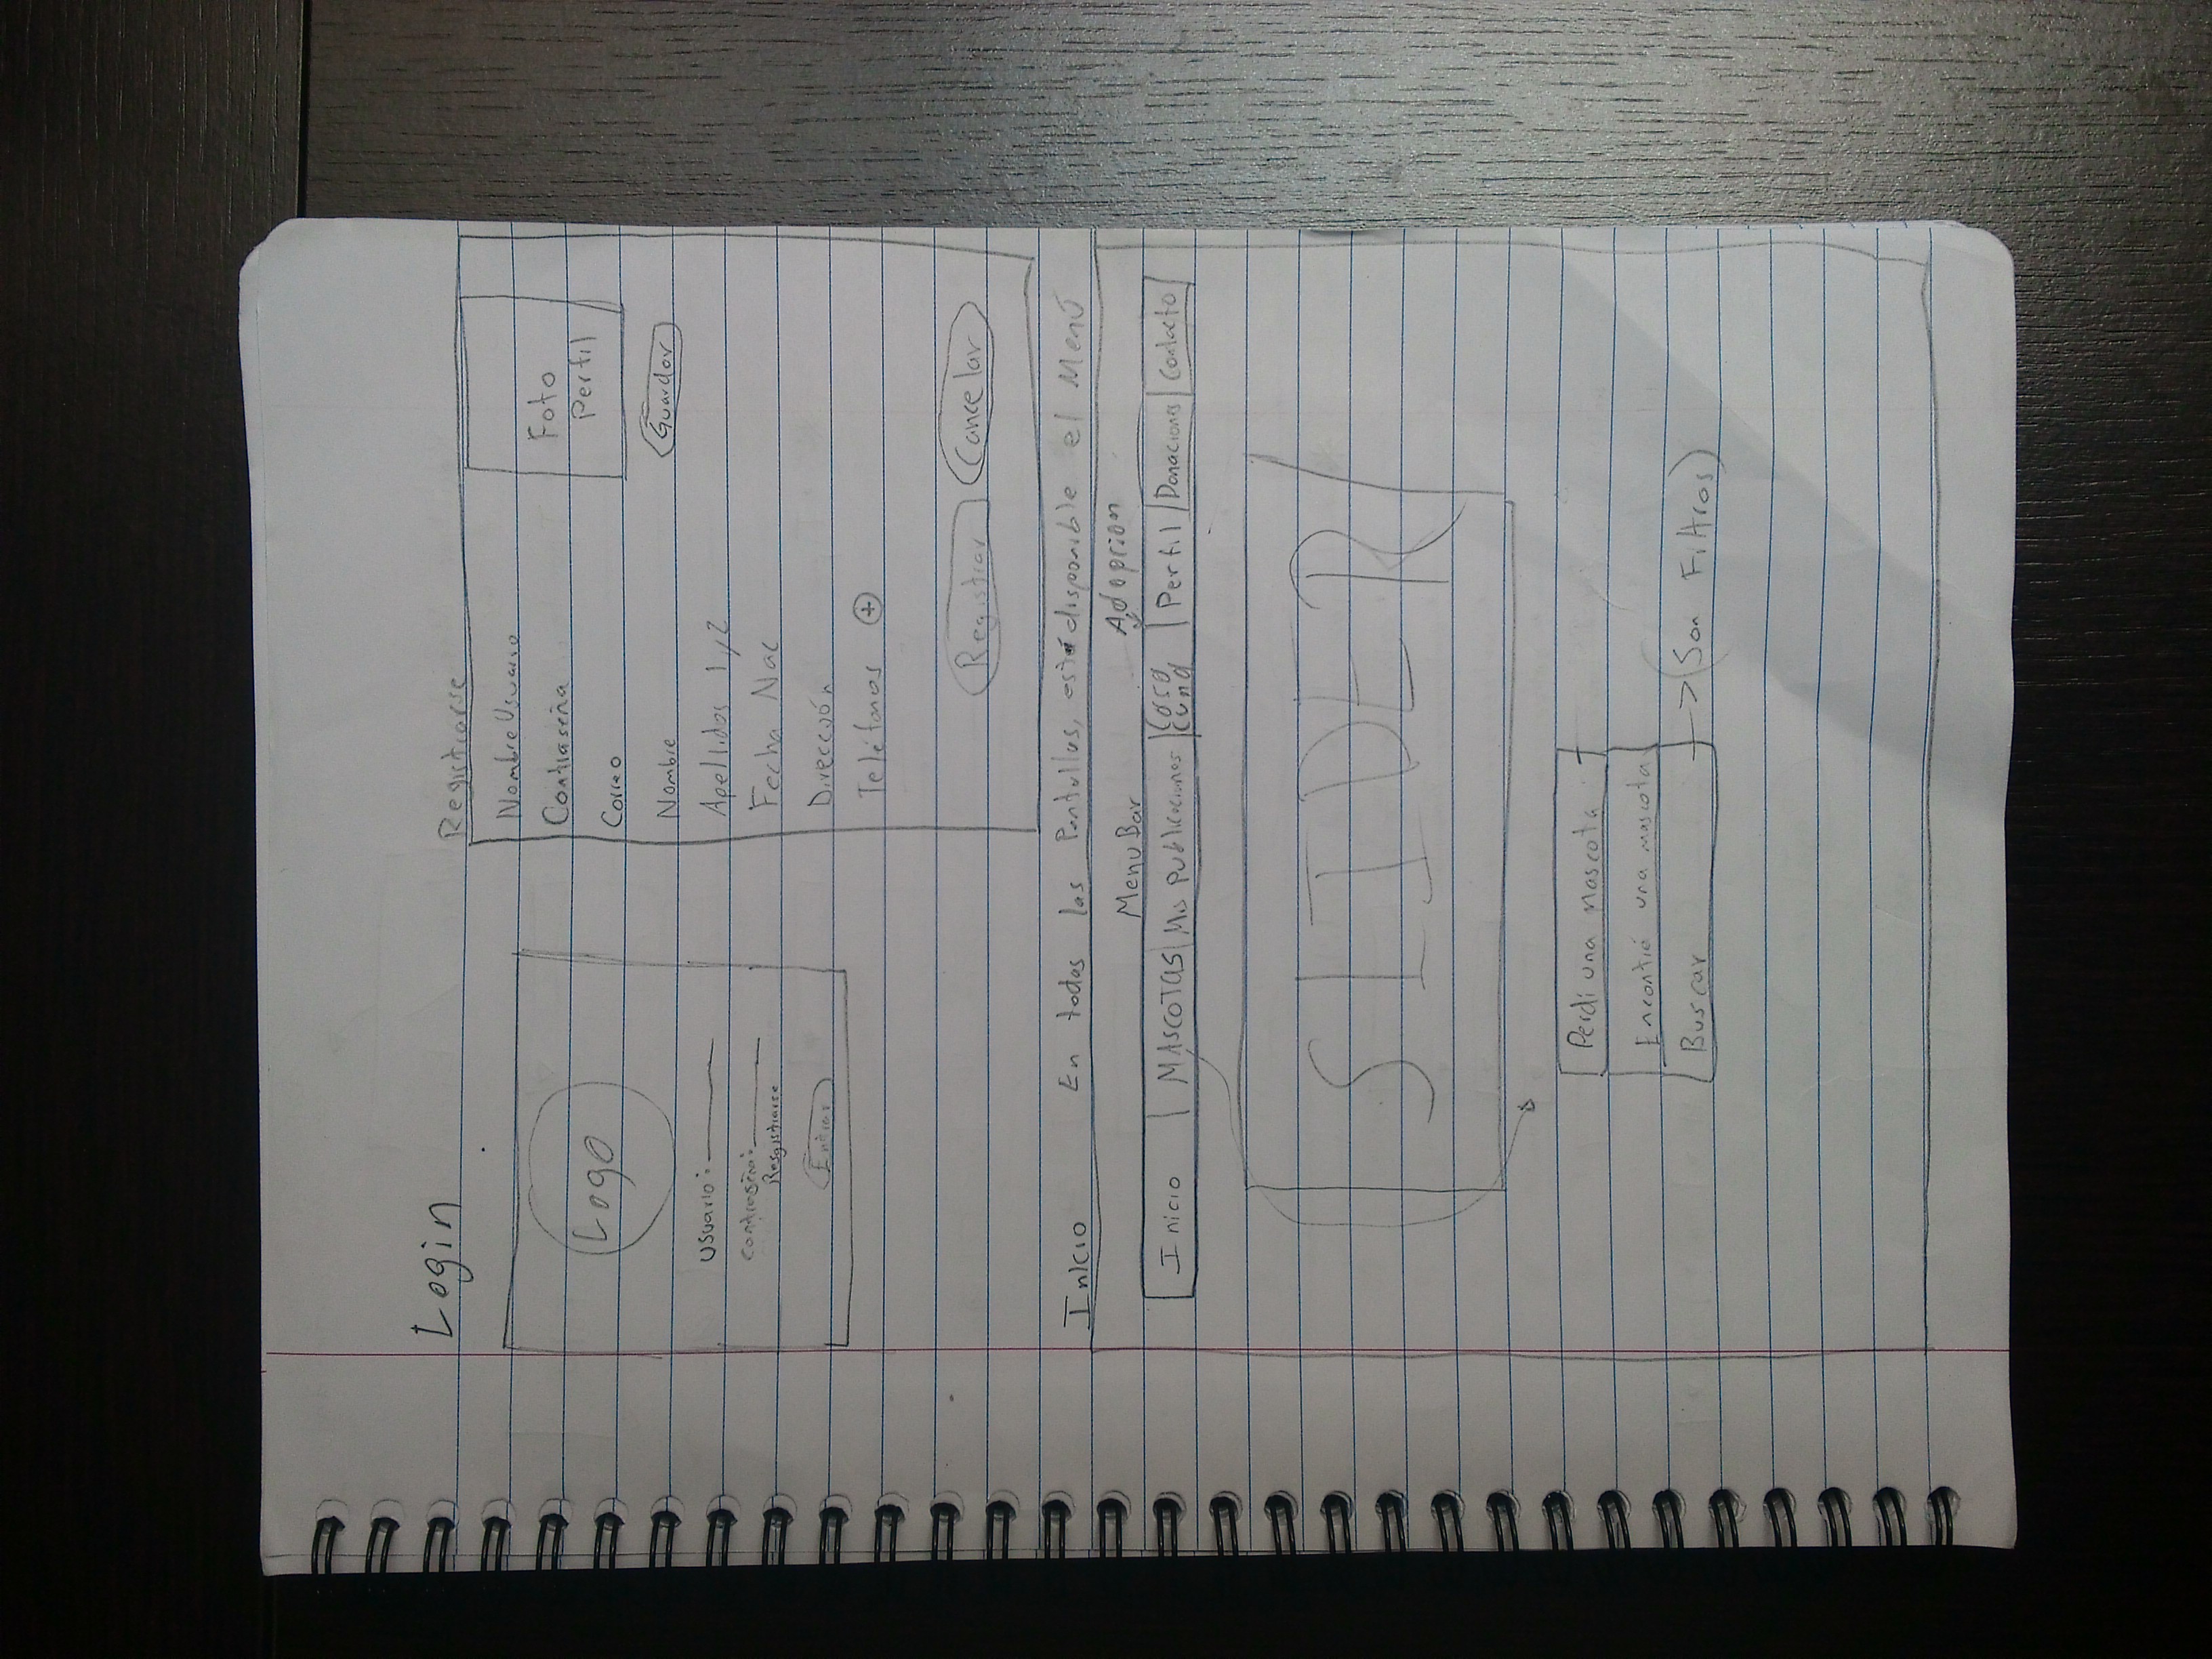 Login
Logo
Usuario:
Contraseña:
Resgistrarse
Entrar
Registrarse
Nombre Usuario
Contraseña
Correo
Nombre
Apellidos 1 y 2
Fecha Nac
Dirección
Teléfonos +
Foto
Perfil
Guardar
Registrar
Cancelar
Inicio
En todas las Pantallas, está disponible el Menú
Menu Bar
Adopcion
Inicio
MASCOTAS
Mis Publicaciones
Casa
cuna
Perfil
Donaciones
Contacto
SLIDER
Perdi una mascota
Encontré una mascota
Buscar -> (Son Filtros)